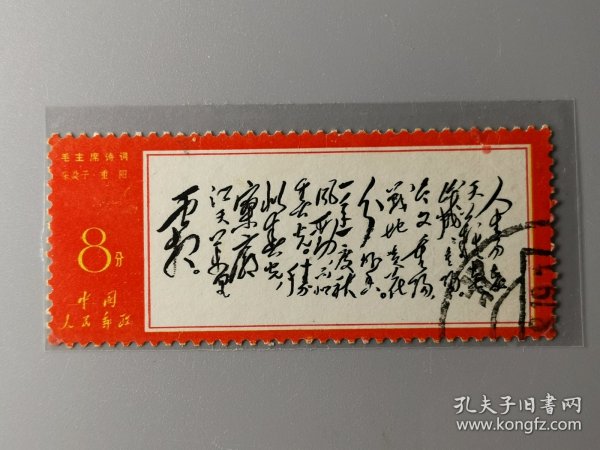 毛主席诗词
采桑子·重阳
8分
中国
人民郵政
人生易老
天难老
岁岁重阳
今又重阳
战地黄花
分外香
一年一度秋
风劲不似
春光。胜
似春光
寥廓
江天万里
霜。
孔夫子旧书网
www.kongfz.com